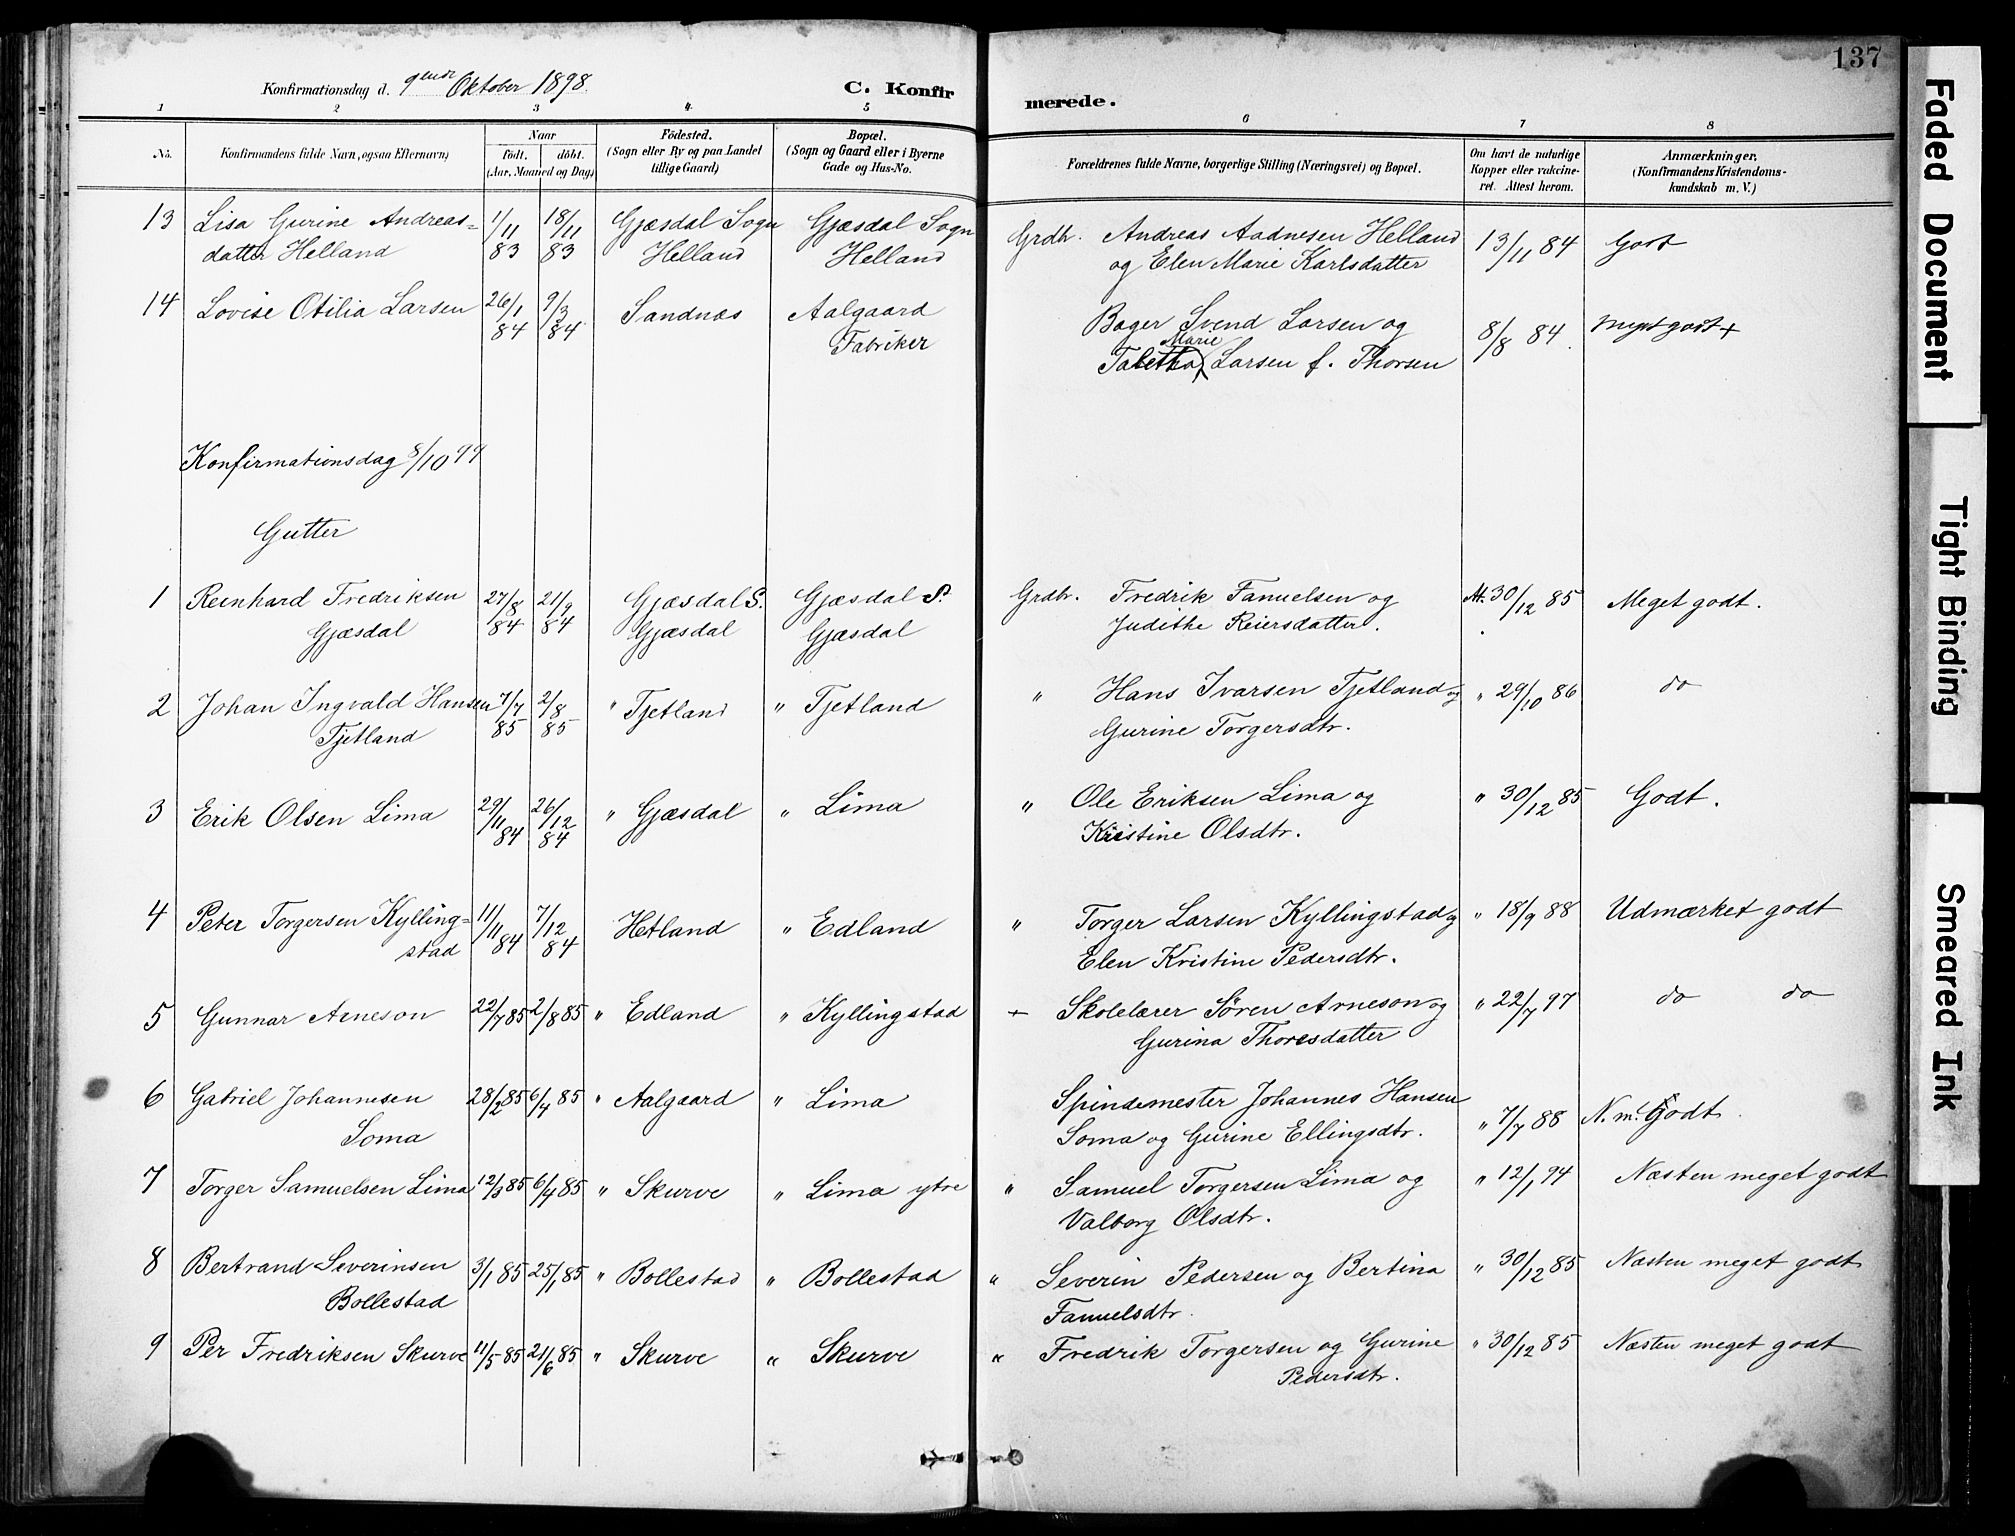 137
Konfirmationsdag d. 9ende Oktober 1898.
C. Konfirmerede.
1 2 3 4 5 6 7 8
No.
Konfirmandens fulde Navn, ogsaa Efternavn)
Naar
födt. döbt.
(Aar, Maaned og Dag)
Födested.
(Sogn eller By og paa Landet
tillige Gaard)
Bopæl.
(Sogn og Gaard eller i Byerne
Gade og Hus-No.
Forældrenes fulde Navne, borgerlige Stilling (Næringsvei) og Bopæl.
Om havt de naturlige
Kopper eller vakcine-
ret. Attest herom.
Anmærkninger.
(Konfirmandens Kristendoms-
kundskab m. V.)
13 Lisa Gurine Andreas= 1/11 18/11 Gjæsdal Sogn Gjæsdal Sogn Grdbr. Andreas Aadnesen Helland 13/11 84 Godt
datter Helland 83 83 Helland Helland og Elen Marie Karlsdatter
14 Lovise Otilia Larsen 26/1 9/3 Sandnæs Aalgaard Bager Svend Larsen og 8/8 84. Meget godt +
84 84 Fabriker Marie
Tabetha Larsen f. Thorsen
Konfirmationsdag 8/10 99
Gutter
1 Reinhard Fredriksen 27/8 21/9 Gjæsdal S. Gjæsdal S. Grdbr. Fredrik Fanuelsen og At. 30/12 85 Meget godt.
Gjæsdal 84 84 Gjæsdal Gjæsdal Judithe Reiersdatter.
2 Johan Ingvald Hansen 7/7 2/8 " Tjetland " Tjetland " Hans Ivarsen Tjetland og " 29/10 86 do
Tjetland 85 85 Gurine Torgersdtr.
3 Erik Olsen Lima 29/11 26/12 " Gjæsdal " Lima " Ole Eriksen Lima og " 30/12 85 Godt.
84 84 Kristine Olsdtr.
4 Peter Torgersen Kylling= 11/11 7/12 Hetland " Edland " Torger Larsen Kyllingstad og " 18/9 88 Udmærket godt
stad 84 84 Elen Kristine Pedersdtr.
5 Gunnar Arneson 22/7 85 2/8 85 " Edland " Kyllingstad + Skolelærer Søren Arneson og " 22/7 97 do do
Gurina Thoresdatter
6 Gabriel Johannesen 28/2 85 6/4 85 " Aalgaard " Lima Spindemester Johannes Hansen " 7/7 88 N. m. Godt.
Soma Soma og Gurine Ellingsdtr.
7 Torger Samuelsen Lima 12/3 85 6/4 85 " Skurve " Lima ytre " Samuel Torgersen Lima og " 12/1 94 Næsten meget godt
Valborg Olsdtr.
8 Bertrand Severinsen 3/1 85 25/1 85 " Bollestad " Bollestad " Severin Pedersen og Bertina " 30/12 85 Næsten meget godt
Bollestad Fanuelsdtr.
9 Per Fredriksen Skurve 11/5 85 21/6 85 " Skurve " Skurve " Fredrik Torgersen og Gurine " 30/12 85 Næsten meget godt
Pedersdtr.
Faded Document
Tight Binding
Smeared Ink